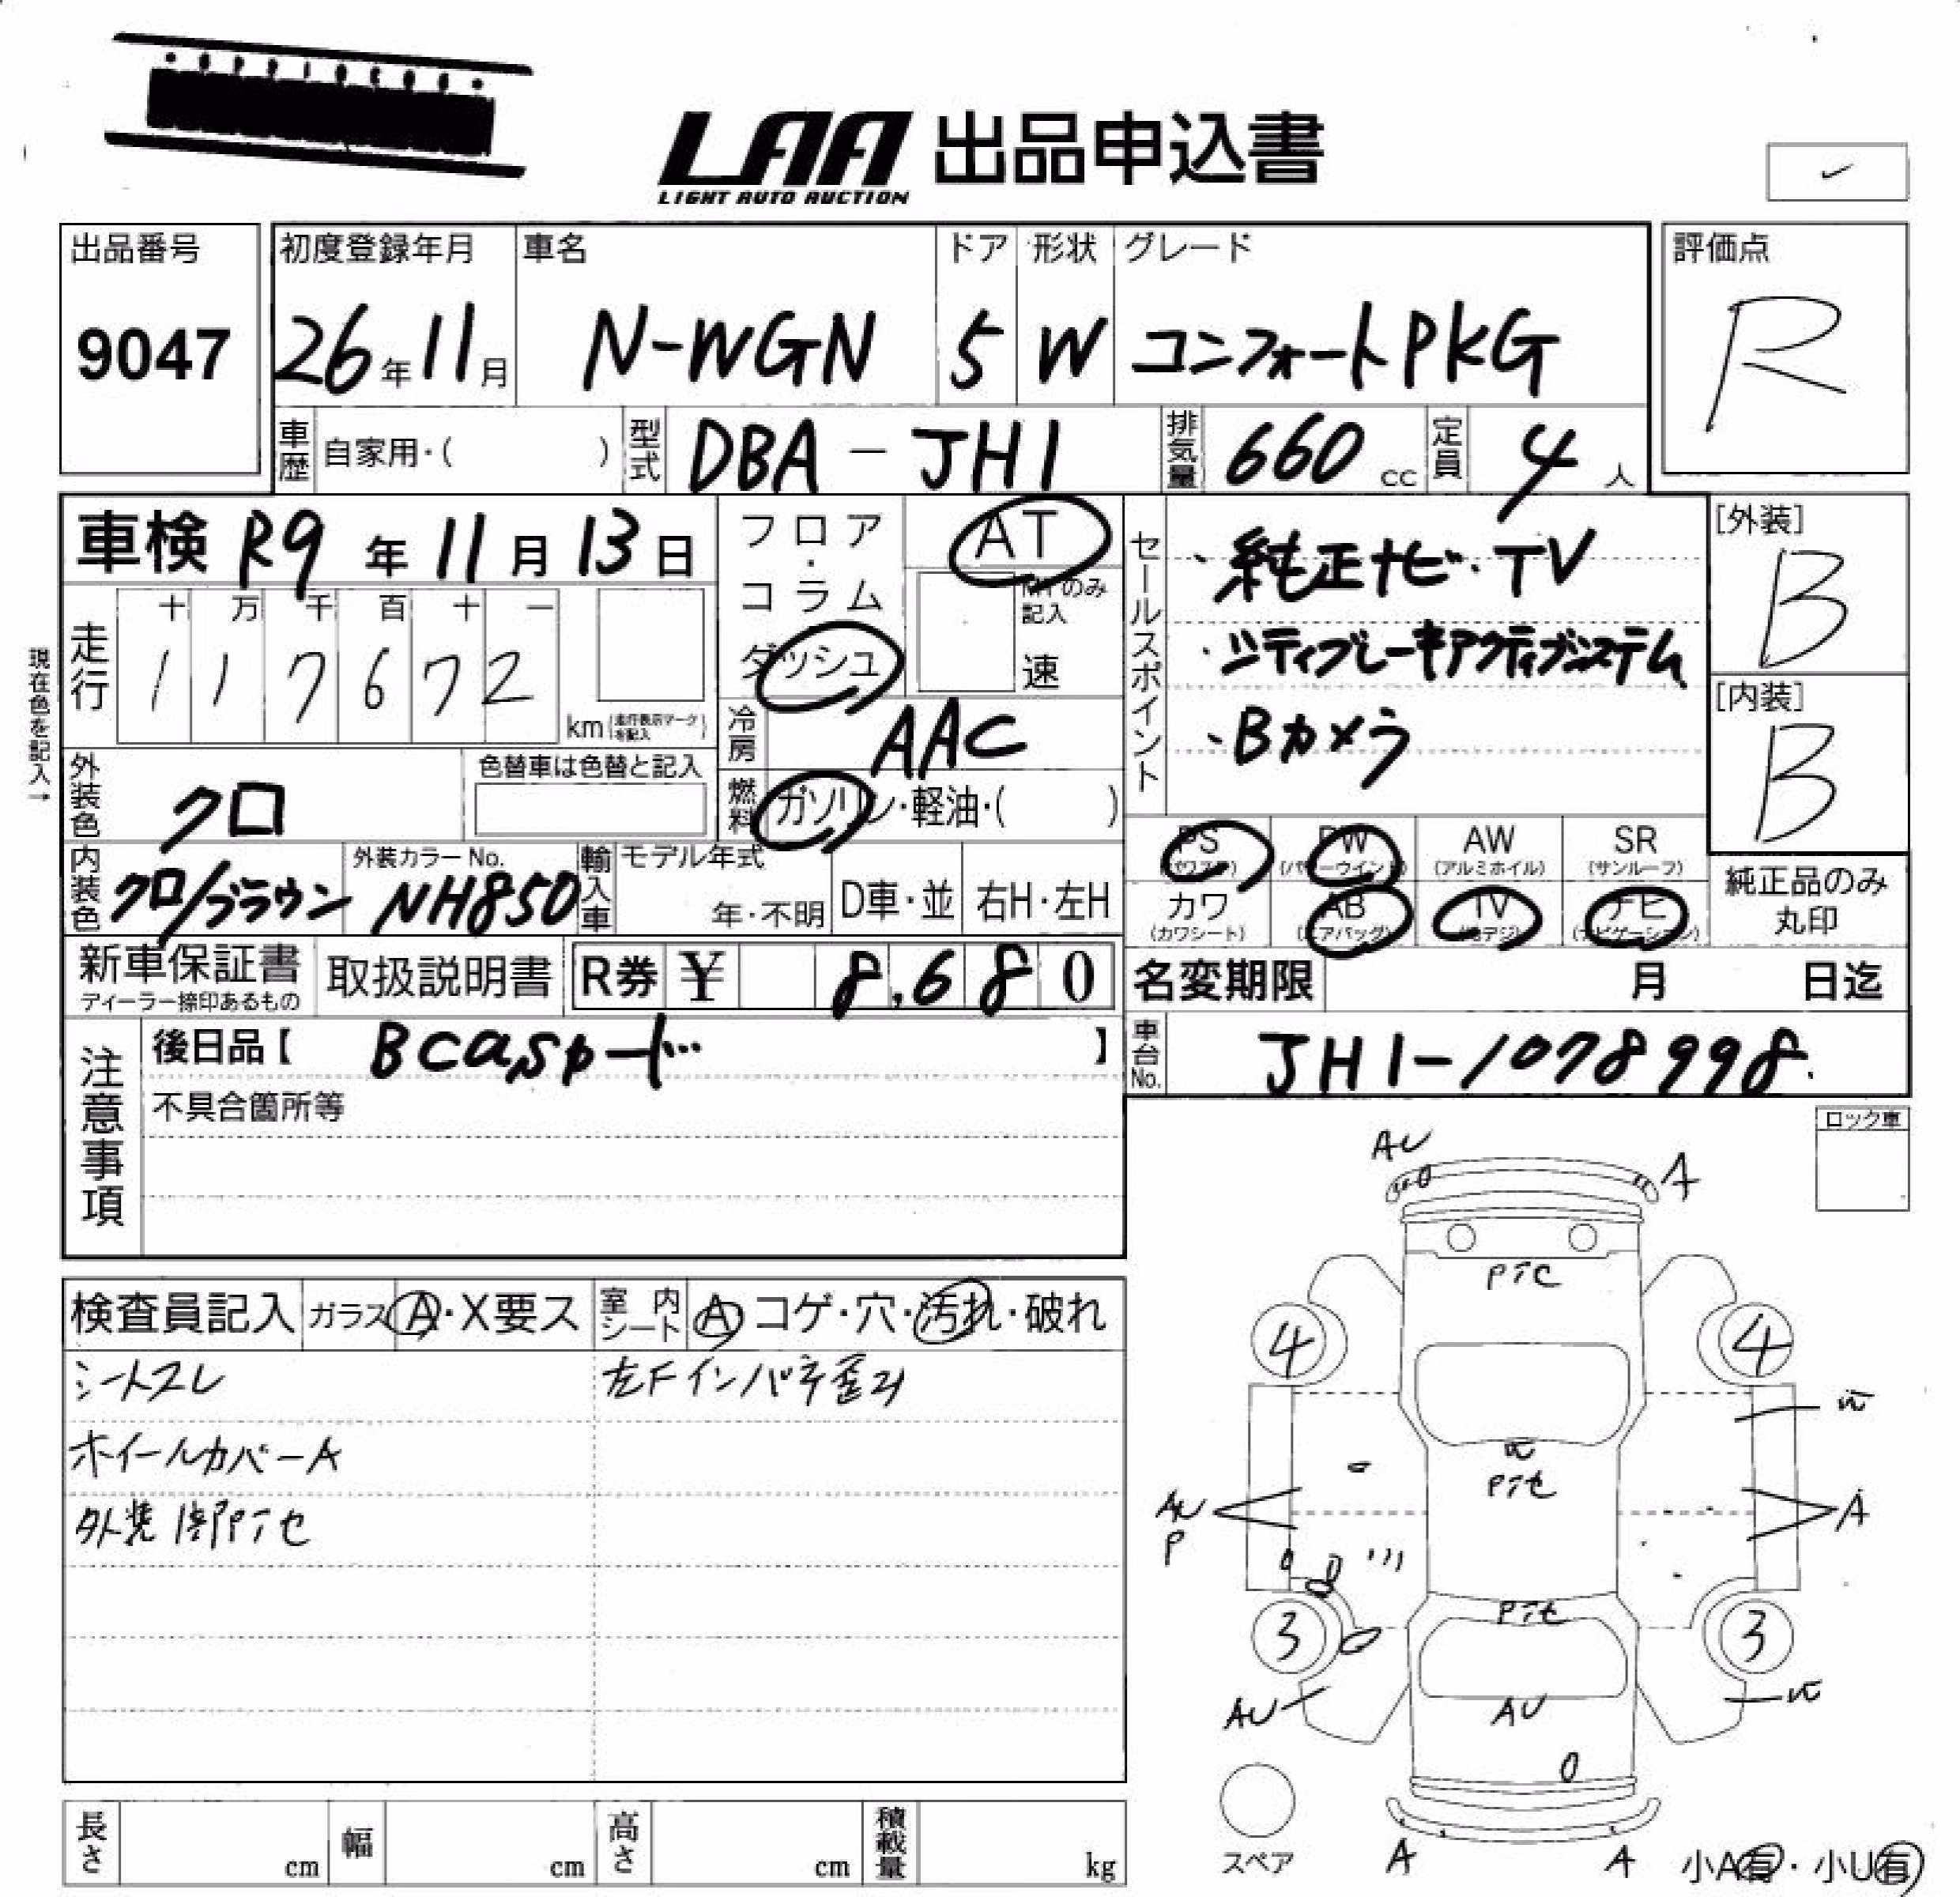 LAA 出品申込書
LIGHT AUTO AUCTION
出品番号
9047
初度登録年月
26年11月
車名
N-WGN
ドア
5
形状
W
グレード
コンフォートPKG
評価点
R
車歴
自家用・( )
型式
DBA-JH1
排気量
660 cc
定員
4人
車検 R9年11月13日
走行
十 万 千 百 十 一
1 1 7 6 7 2
km (走行表示マークを記入)
現在色を記入→
フロア・コラム
ダッシュ
AT
MTのみ記入
速
冷房
AAC
燃料
ガソリン・軽油・( )
セールスポイント
・純正ナビ・TV
・シティブレーキアクティブシステム
・Bカメラ
[外装]
B
[内装]
B
外装色
クロ
色替車は色替と記入
内装色
クロ/ブラウン
外装カラーNo.
NH850
輸入車
モデル年式
年・不明
D車・並
右H・左H
PS
(パワステ)
PW
(パワーウインド)
AW
(アルミホイル)
SR
(サンルーフ)
カワ
(カワシート)
AB
(エアバッグ)
TV
(地デジ)
ナビ
(ナビゲーション)
純正品のみ
丸印
新車保証書
ディーラー捺印あるもの
取扱説明書
R券 ¥ 8,680
名変期限 月 日迄
注意事項
後日品【 Bcasカード 】
不具合箇所等
車台No.
JH1-1078998
ロック車
検査員記入
ガラス A・X要ス
室内シート A コゲ・穴・汚れ・破れ
シートスレ
左Fインパネ歪み
ホイールカバーA
外装1部Pテセ
AU
A
4
4
Pテセ
AU
P
A
3
3
Pテセ
AU
AU
スペア
A
A
小A有・小U有
長さ cm
幅 cm
高さ cm
積載量 kg